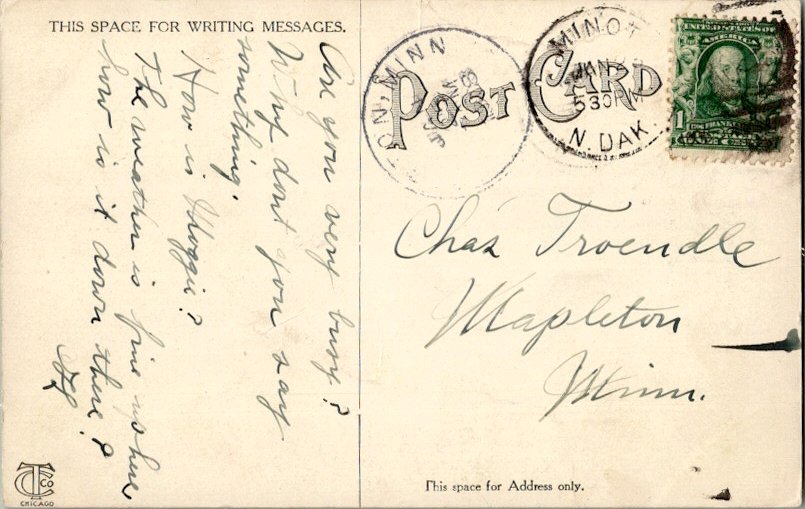 THIS SPACE FOR WRITING MESSAGES.
Are you very busy?
Why dont you say
something.
How is Hoggie?
The weather is fine up here
how is it down there?
POST CARD
TON, MINN
MINOT
JAN
530
N. DAK.
UNITED STATES OF
AMERICA
1
Chas Troendle
Mapleton
Minn.
This space for Address only.
CTCO
CHICAGO